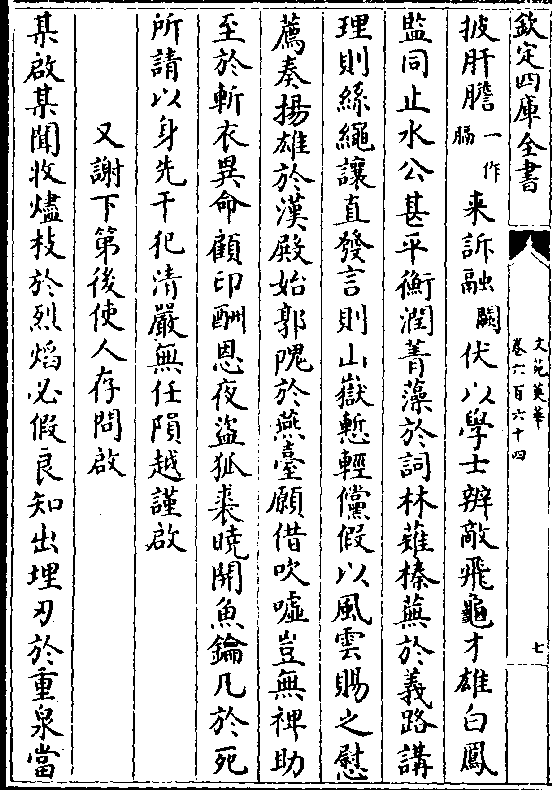 欽定四庫全書
文苑英華
卷六百六十四
七
披肝膽一作膈来訴融闕伏以學士辨敵飛龜才雄白鳳
監同止水公甚平衡潤菁藻於詞林薙榛蕪於義路講
理則絲繩讓直發言則山嶽慙輕儻假以風雲賜之慰
薦奏揚雄於漢殿始郭隗於燕臺願借吹噓豈無禆助
至於斬衣異命顧印酬恩夜盜狐裘曉開魚鑰凡於死
所請以身先干犯清嚴無任隕越謹啟
又謝下第後使人存問啟
某啟某聞收燼枝於烈焰必假良知出埋刃於重泉當